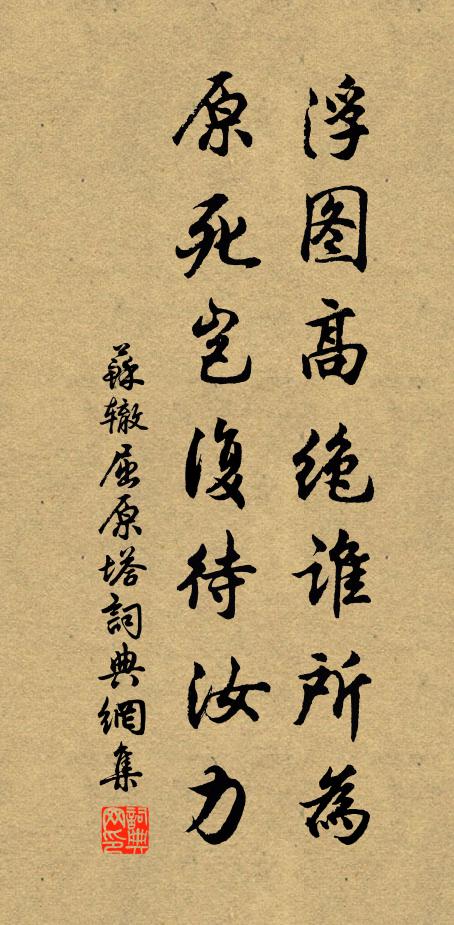 浮图高绝谁所為
原死岂復待汝力
蘇辙屈原塔詞典網集
詞典网印